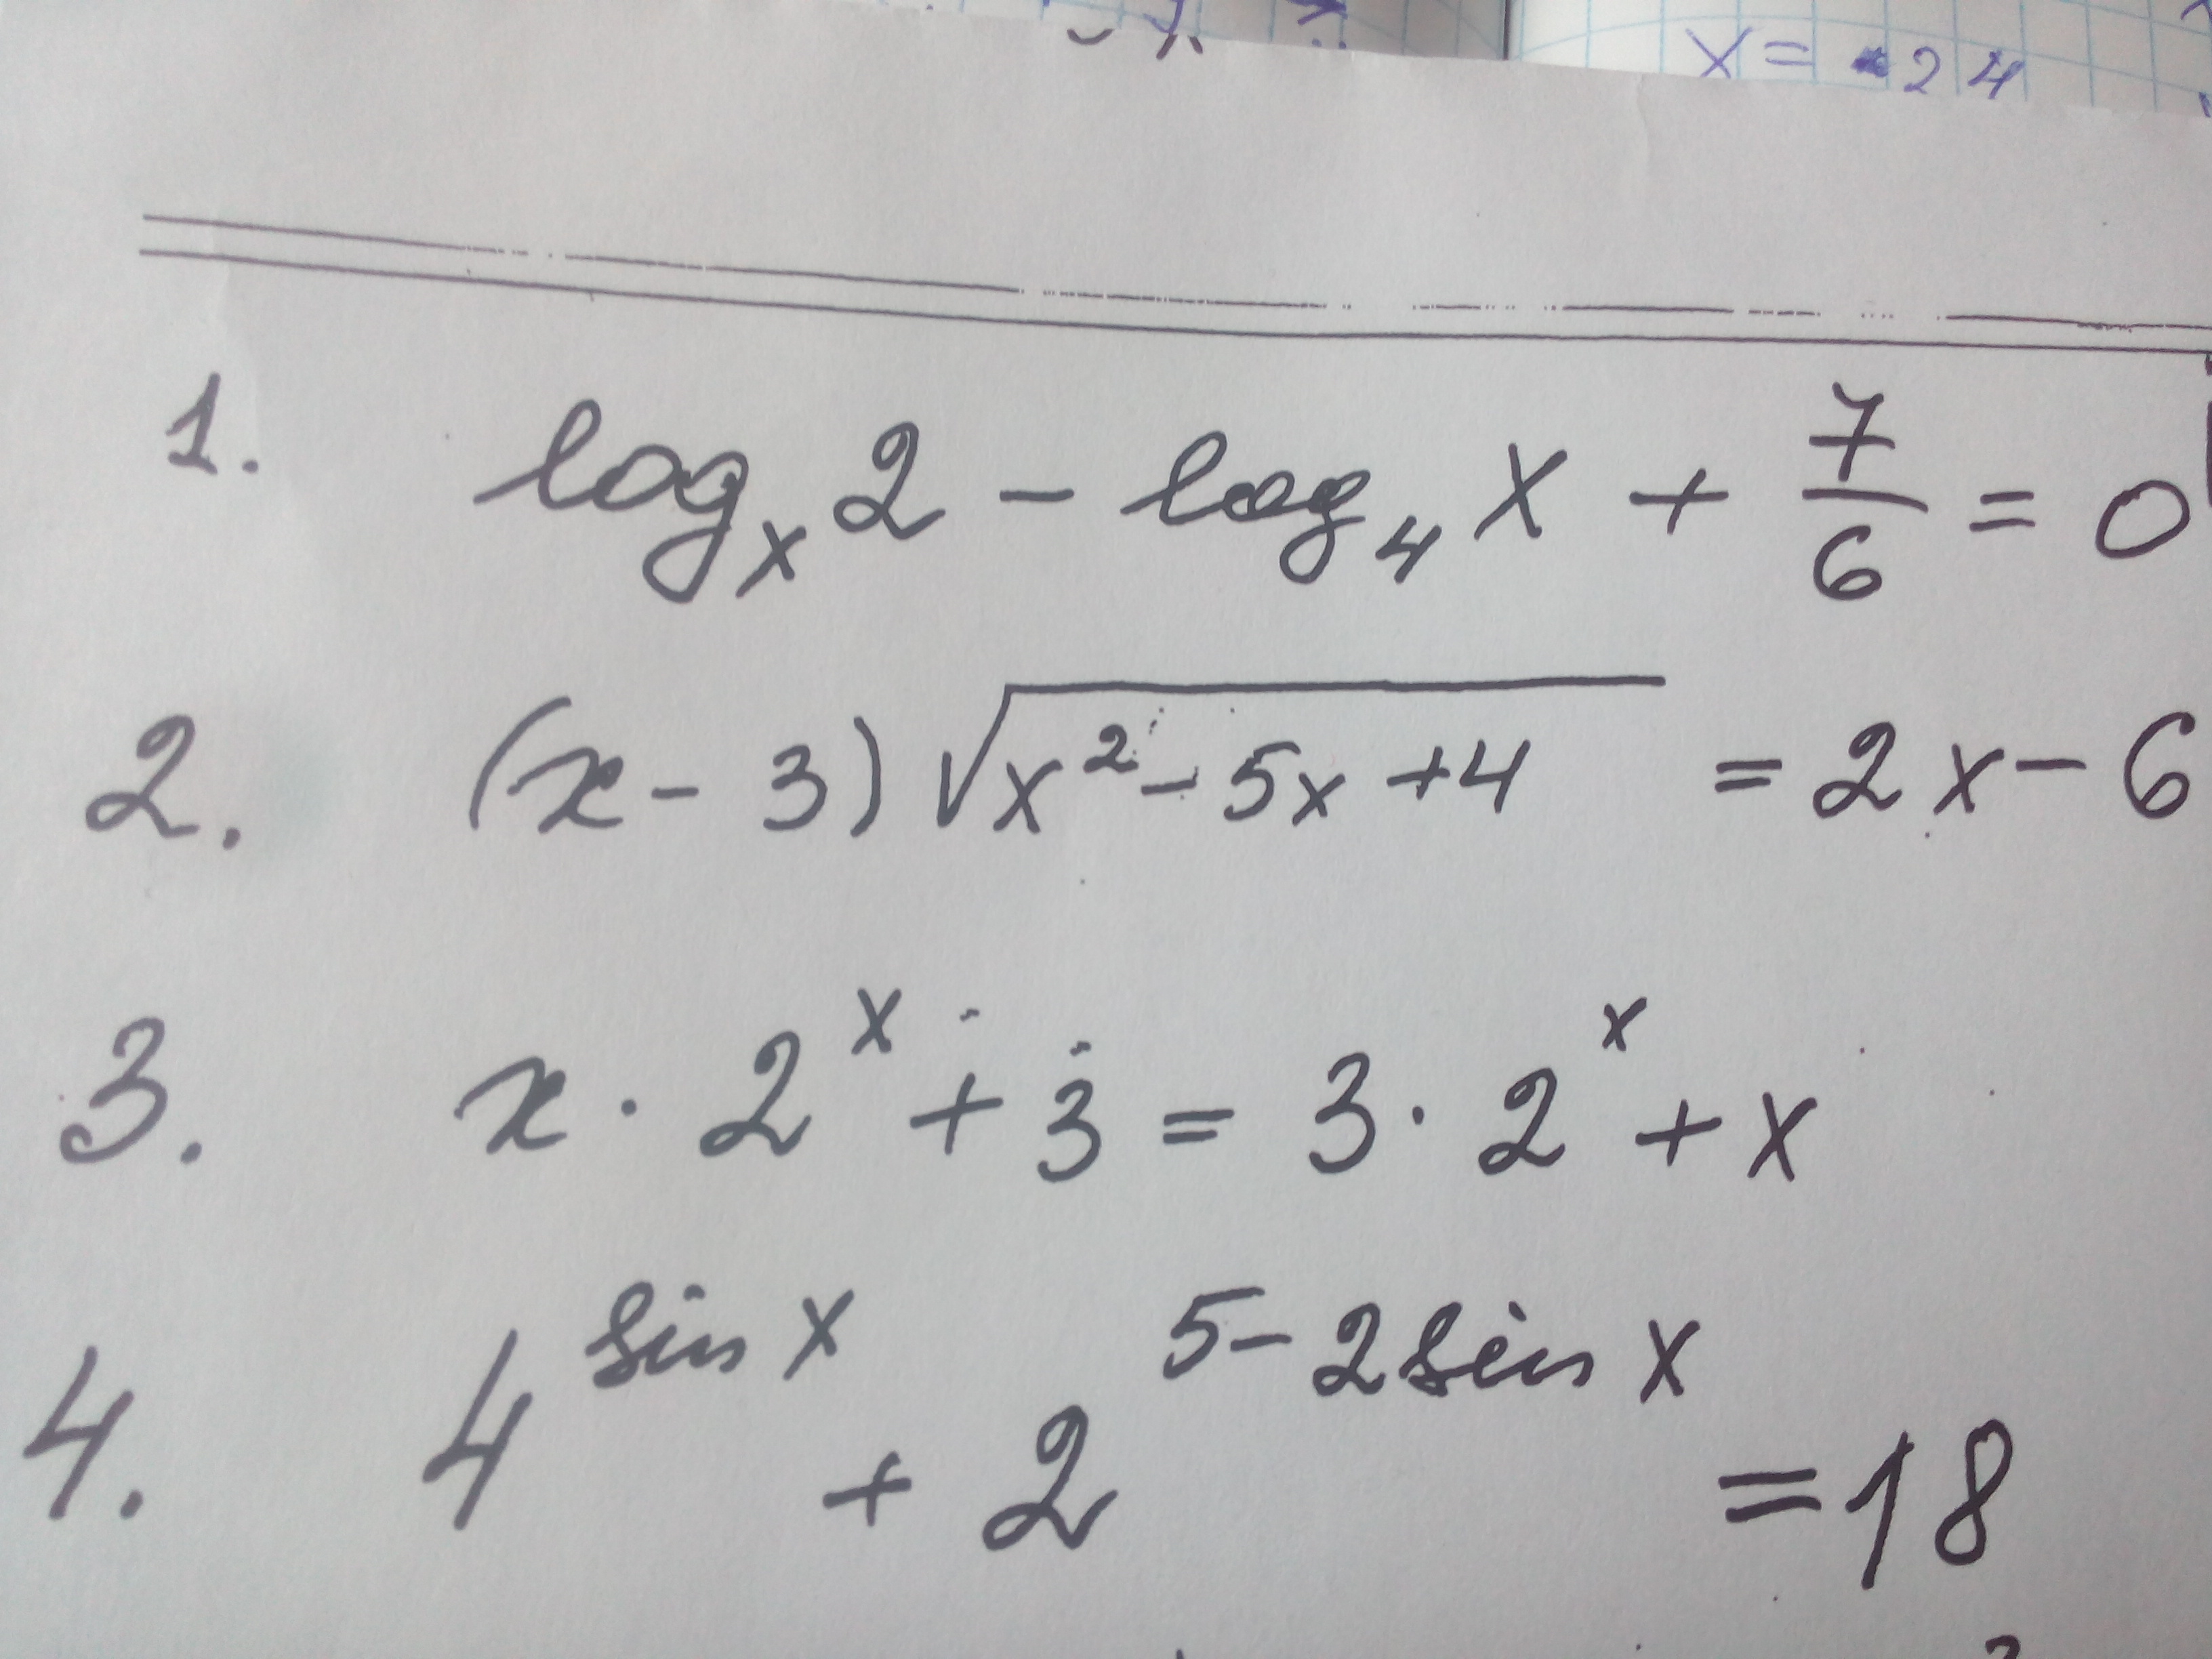 x = -24
1. logₓ2 - log₄x + 7/6 = 0
2. (x - 3)√(x² - 5x + 4) = 2x - 6
3. x · 2ˣ + 3 = 3 · 2ˣ + x
4. 4^(sin x) + 2^(5 - 2 sin x) = 18